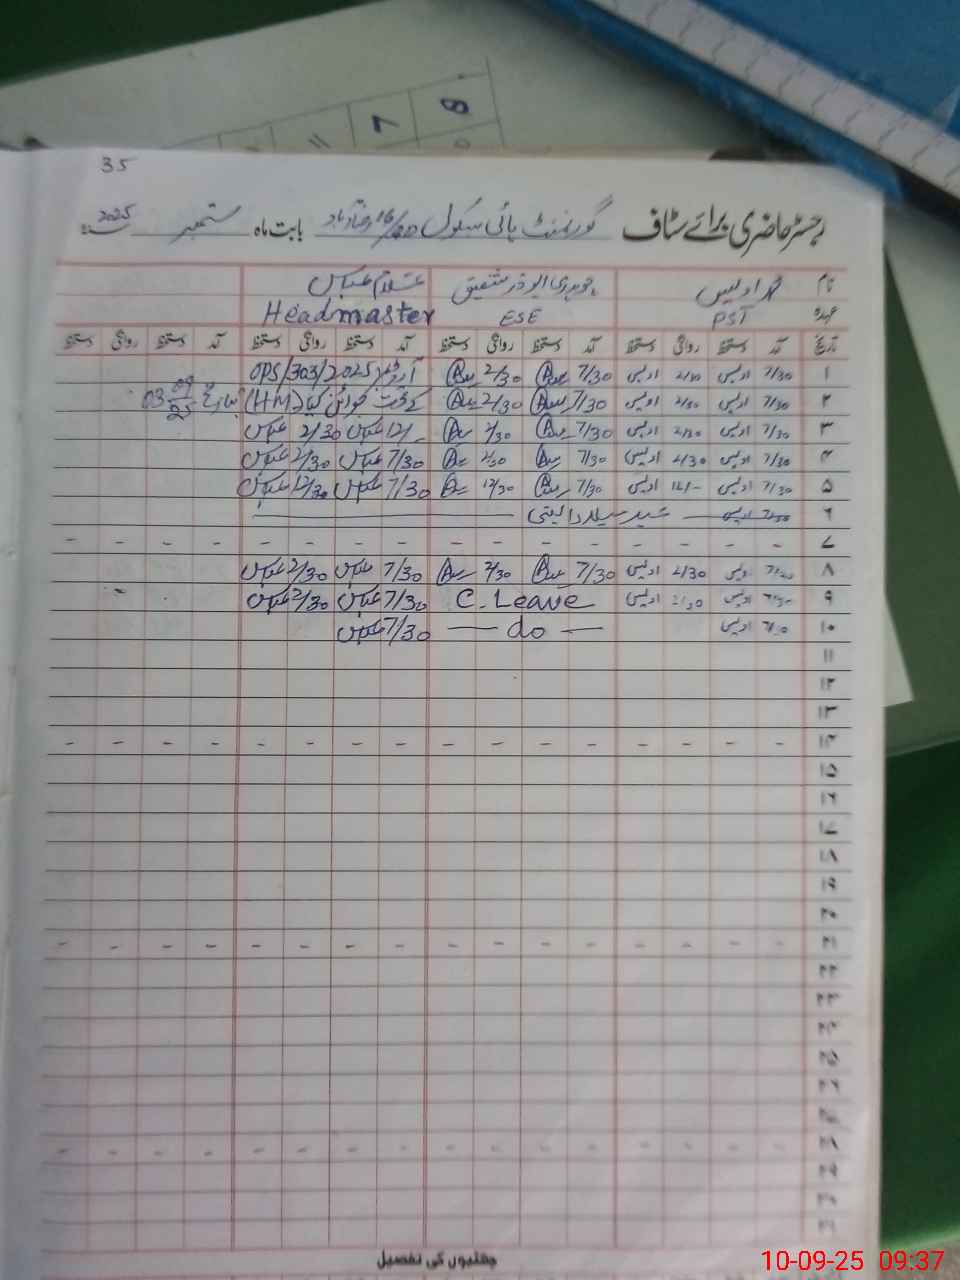 35
رجسٹر حاضری برائے سٹاف گورنمنٹ ہائی سکول بابت ماہ ستمبر 2025
نام محمد ادریس چوہدری ابوذر شفیق غلام عباس
عہدہ PST ESE Headmaster
تاریخ آمد دستخط روانگی دستخط آمد دستخط روانگی دستخط آمد دستخط روانگی دستخط آمد دستخط روانگی دستخط
۱ 7/30 ادریس 2/30 ادریس 7/30 2/30 آرڈر نمبر OPS/303/2025
۲ 7/30 ادریس 2/30 ادریس 7/30 2/30 کے تحت جوائن کیا (HM) بتاریخ 03 09 25
۳ 7/30 ادریس 2/30 ادریس 7/30 2/30 12/- عباس 2/30 عباس
۴ 7/30 ادریس 2/30 ادریس 7/30 2/30 7/30 عباس 2/30 عباس
۵ 7/30 ادریس 12/- ادریس 7/30 12/30 7/30 عباس 12/30 عباس
۶ 7/30 ادریس عید میلادالنبی
۷ - - - - - - - - - - - - - - - -
۸ 7/30 ادریس 2/30 ادریس 7/30 2/30 7/30 عباس 2/30 عباس
۹ 7/30 ادریس 2/30 ادریس C. Leave 7/30 عباس 2/30 عباس
۱۰ 7/30 ادریس — do — 7/30 عباس
۱۱
۱۲
۱۳
۱۴ - - - - - - - - - - - - - - - -
۱۵
۱۶
۱۷
۱۸
۱۹
۲۰
۲۱ - - - - - - - - - - - - - - - -
۲۲
۲۳
۲۴
۲۵
۲۶
۲۷
۲۸ - - - - - - - - - - - - - - - -
۲۹
۳۰
۳۱
چھٹیوں کی تفصیل
7 8
11
10-09-25 09:37